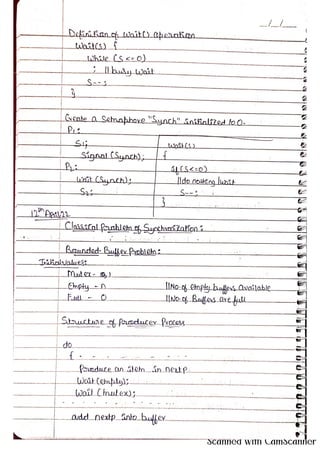 __/__/__
Definition of wait() operation
Wait(s) {
while (S <= 0)
; // busy wait
S--;
}
Create a Semaphore "Synch" initialized to 0.
P1:
S1; wait(s)
Signal (Synch); {
P2: if (S<=0)
Wait (Synch); //do nothing/wait
S2; S--;
}
12th April, 22
Classical Problem of Synchronization:
Bounded-Buffer Problem:
Initial values:
Mutex - 1
Empty - n //No. of empty buffers available
Full - 0 //No. of Buffers are full
Structure of Producer Process
do
{ - - - - - - - -
Produce an item in nextp
Wait (empty);
Wait (mutex);
- - - - - - - -
add nextp into buffer
Scanned with CamScanner